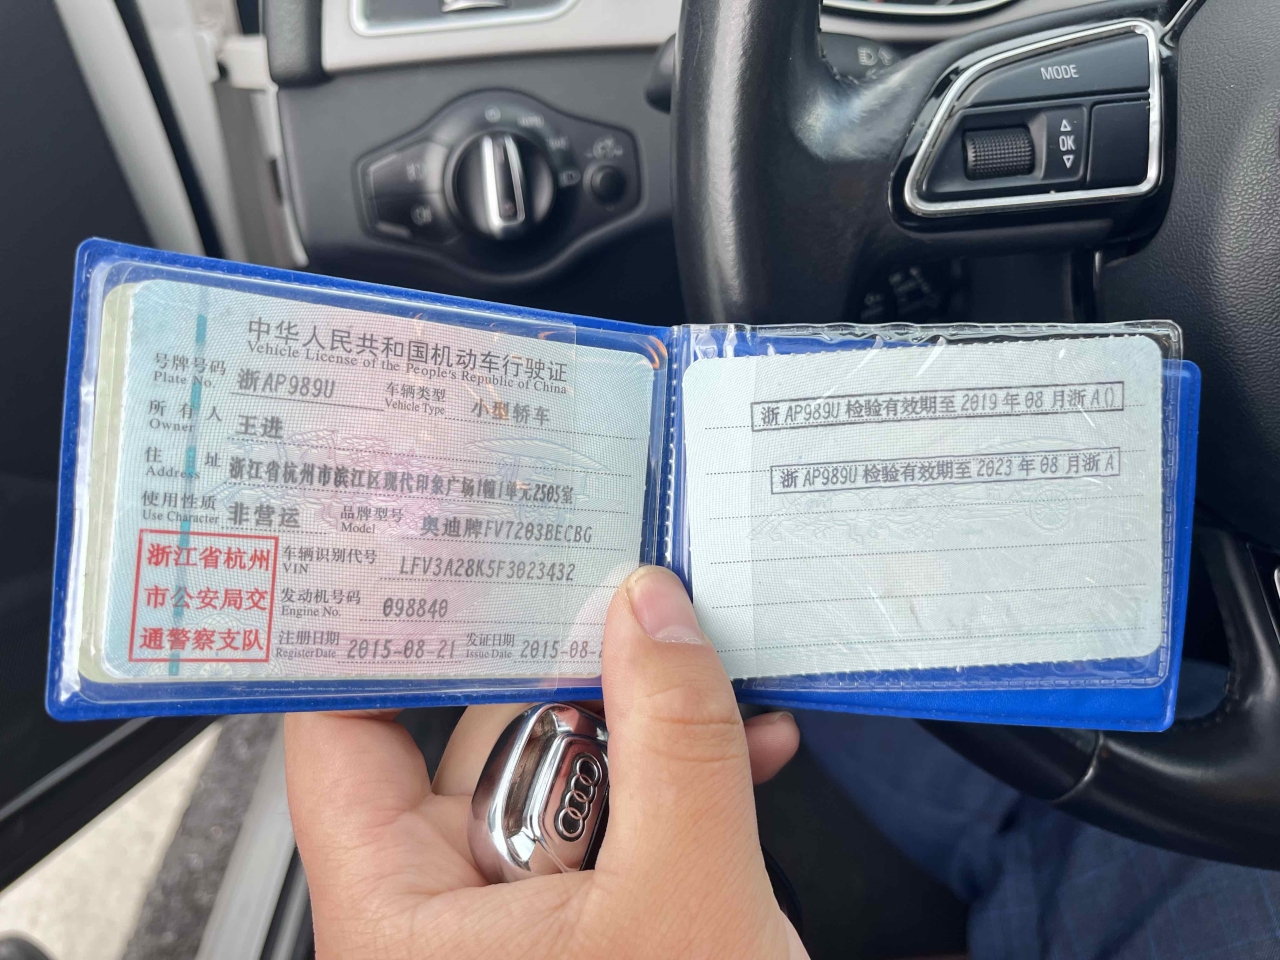 MODE
OK
中华人民共和国机动车行驶证
Vehicle License of the People's Republic of China
号牌号码 浙AP989U 车辆类型 小型轿车
Plate No. Vehicle Type
所有人 王进
Owner
住址 浙江省杭州市滨江区现代印象广场1幢1单元2505室
Address
使用性质 非营运 品牌型号 奥迪牌FV7203BECBG
Use Character Model
浙江省杭州
市公安局交
通警察支队
车辆识别代号 LFV3A28K5F3023432
VIN
发动机号码 098840
Engine No.
注册日期 2015-08-21 发证日期 2015-08-
Register Date Issue Date
浙AP989U检验有效期至2019年08月浙A()
浙AP989U检验有效期至2023年08月浙A